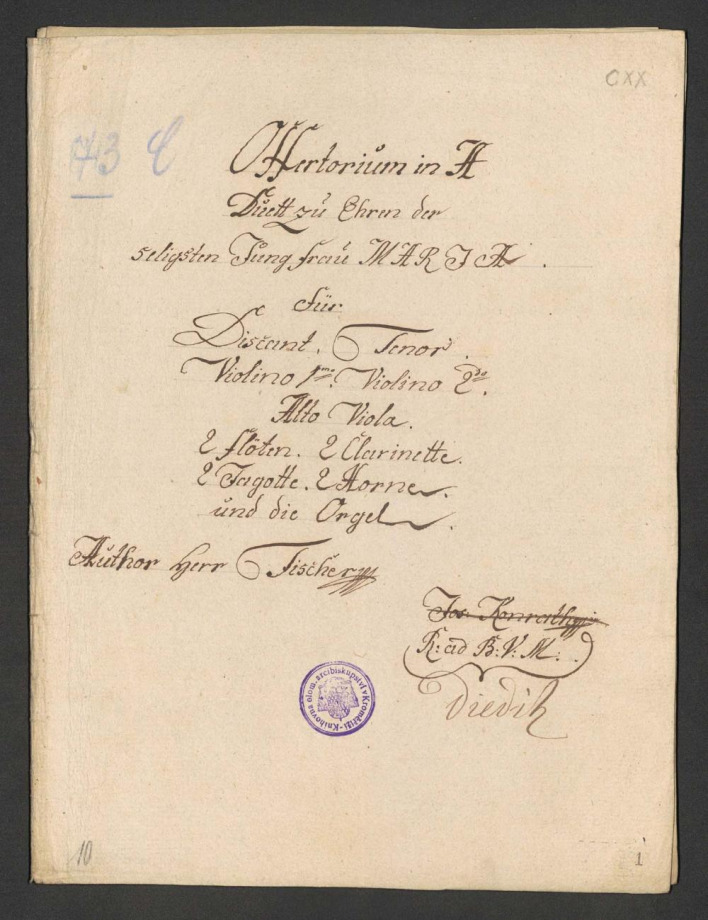 CXX
43 C
Offertorium in A
Duett zu Ehren der
seligsten Jungfrau MARJA.
für
Discant. Tenor.
Violino 1mo. Violino 2do.
Alto Viola.
2 flöten. 2 Clarinette.
2 Fagotte. 2 Horne.
und die Orgel.
Author Herr Fischer
Jos. Konrath
R: ad B: V: M:
Knihovna olom. arcibiskupství v Kroměříži
10
1